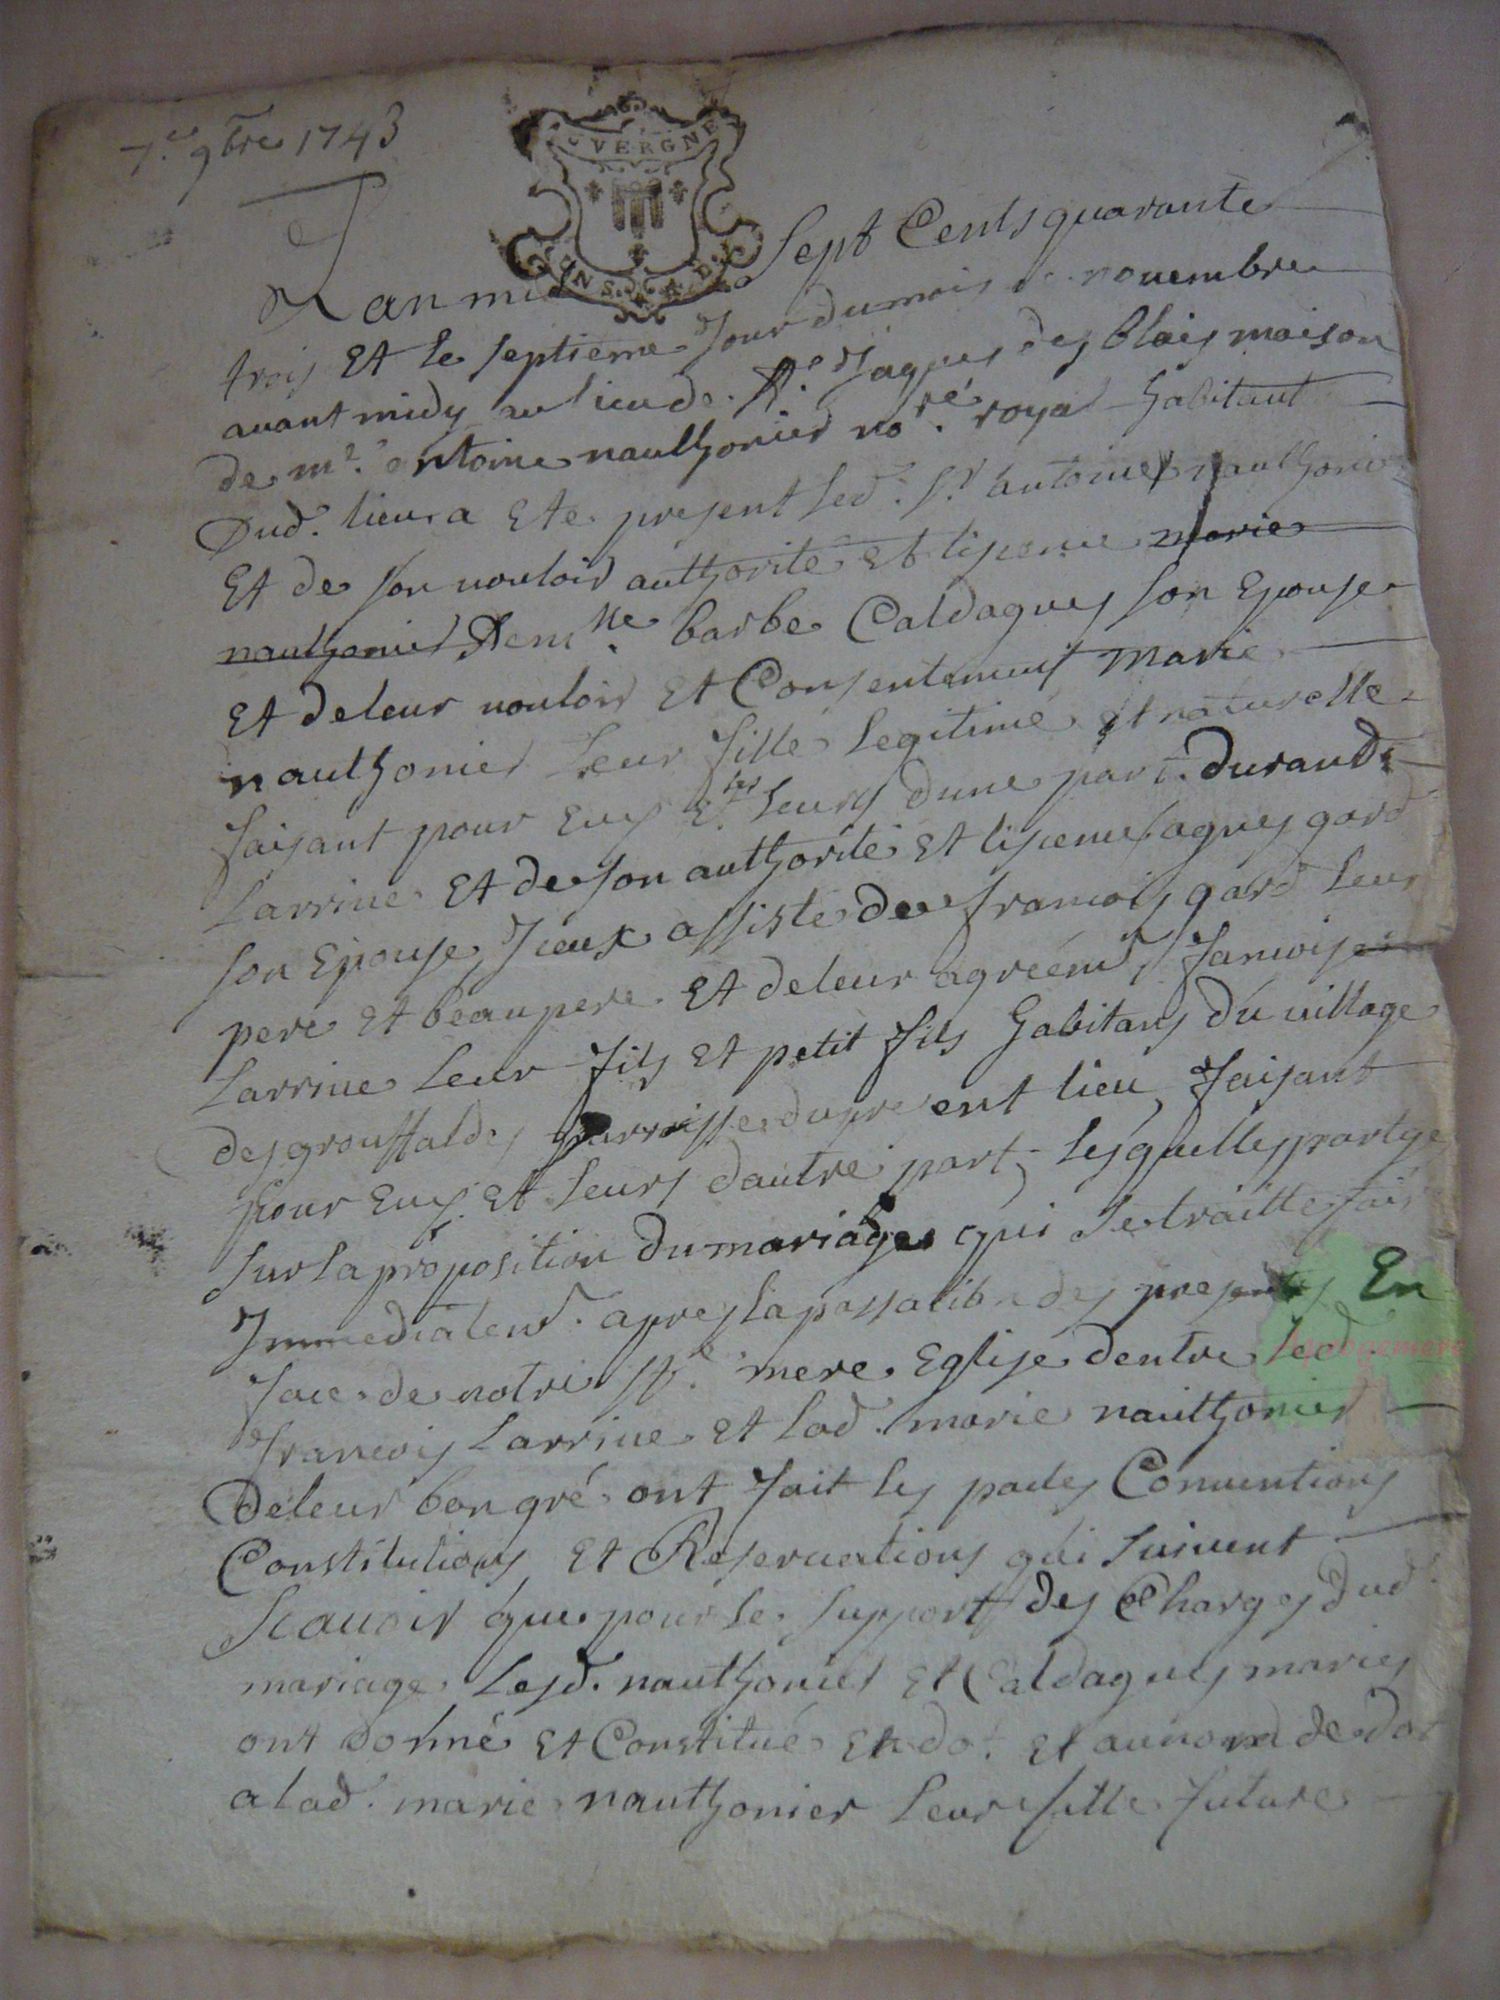 7.e 9bre 1743
UVERGNE
Lan mil Sept Cents quarante
trois Et le septieme Jour du mois de nouembre
auant midy au lieu de St. Jaques des blais maison
de mr. antoine nauthonier nore. royal habitant
Dud. lieu a Ete present led. Sr. antoine nauthonier
Et de son vouloir authorité et lisence marie
nauthonier Demlle. barbe Caldagues son Epouse
Et de leur vouloir Et Consentement marie
nauthonier Leur fille legitime et naturelle
faisant pour Eux Et les leurs dune part. durand
Larrive Et de son authorité Et lisence agnes gard
son Epouse, Iceux assisté de francois gard leur
pere et beaupere Et de leur agréemt, francois
Larrive leur fils et petit fils habitans du village
des grouffaldes parroisse du present lieu, faisant
pour Eux et leurs dautre part, lesquelles partyes
sur la proposition du mariage qui se traitte fait
Immediatemt. apres la passation des presentes En
face de notre Ste. mere Eglise dentre led.
francois Larrive et lad. marie nauthonier
De leur bon gré ont fait les pactes Conventions
Constitutions Et Reservations qui suivent
Scauoir que pour le support des Charges dud.
mariage Lesd. nauthonier Et Caldagues maries
ont donné et Constitué En dot Et au nom de dot
a lad. marie nauthonier leur fille future